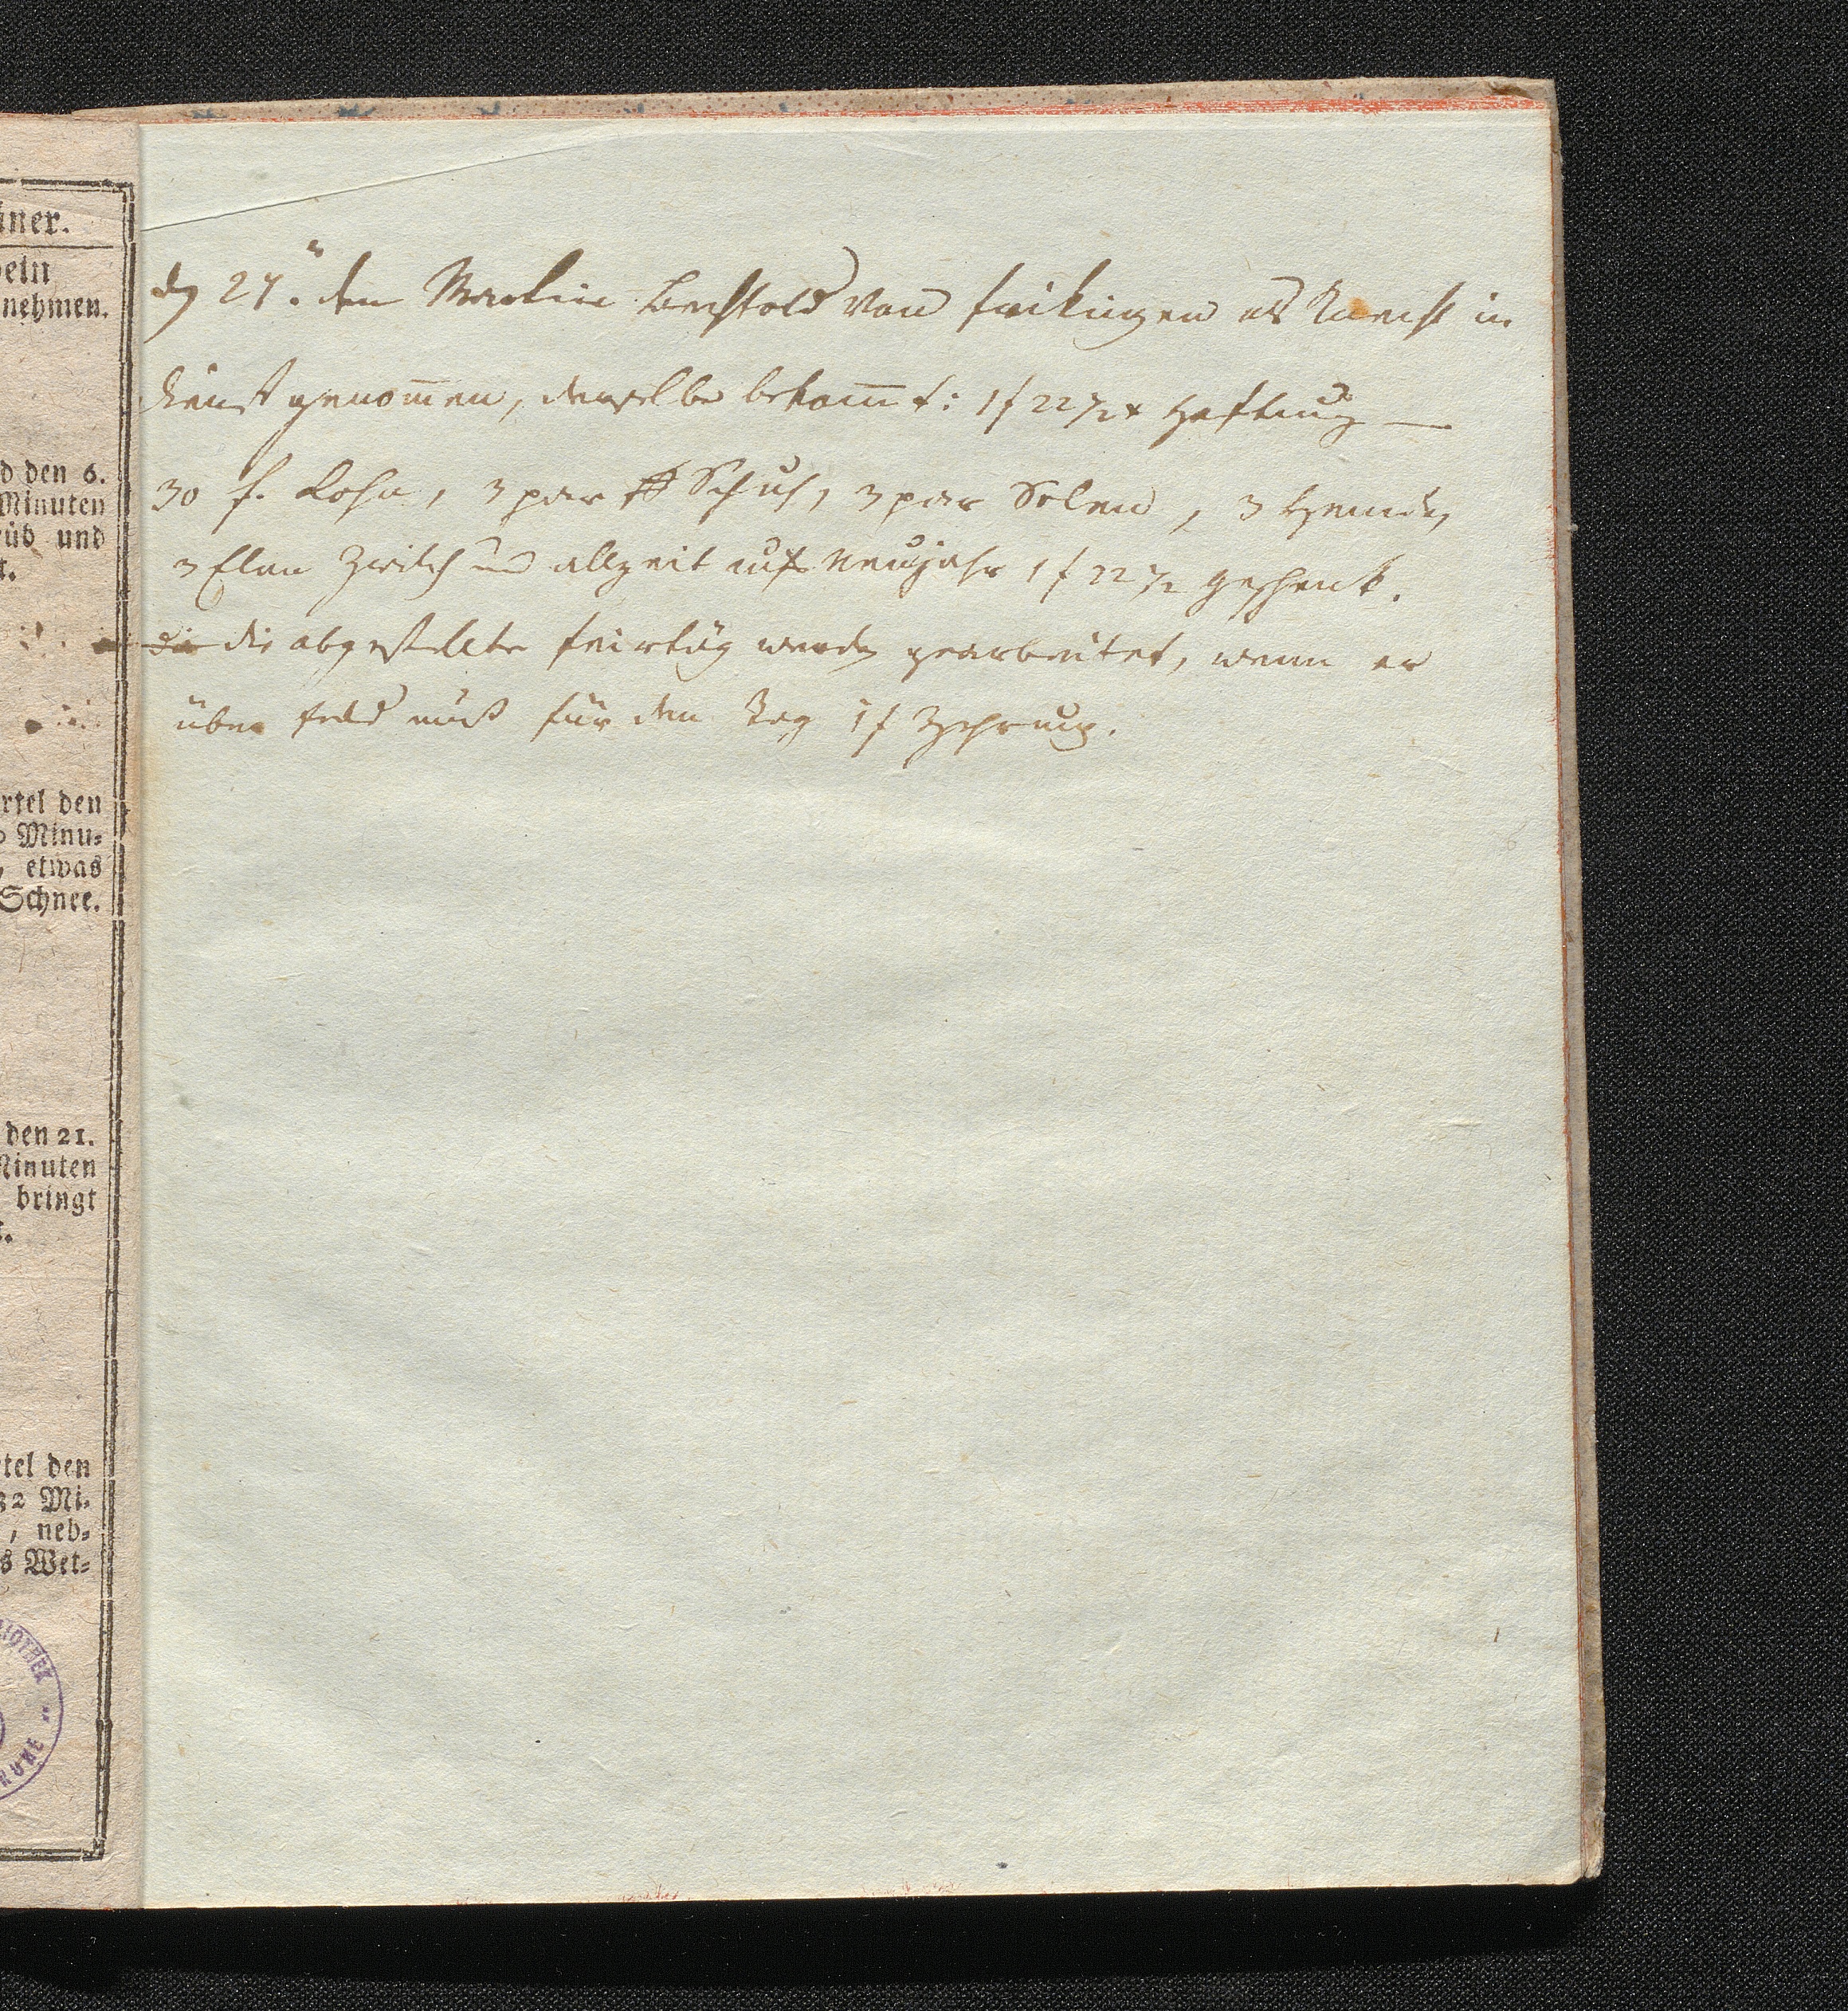 iner.
bein
nehmen.
d den 6.
Minuten
rüb und
t.
rtel den
0 Minu-
, etwas
Schnee.
den 21.
Minuten
bringt
t.
rtel den
32 Mi-
, neb-
s Wet-
LIOTHEK
RUHE
den 27.n den Martin Berchtold von frikingen als Knecht in
dienst genom̅en, derselbe bekom̅t: 1 f 22 1/2 x Haftung —
30 f. Lohn, 3 par Schuh, 3 par Solen, 3 Hemden
3 Elen Zwilch und allzeit aufs Neujahr 1 f 22 1/2 geschenk.
die die abgestellte feirtäg werden gearbeitet, wenn er
über feld muß für den Tag 1 f Zehrung.